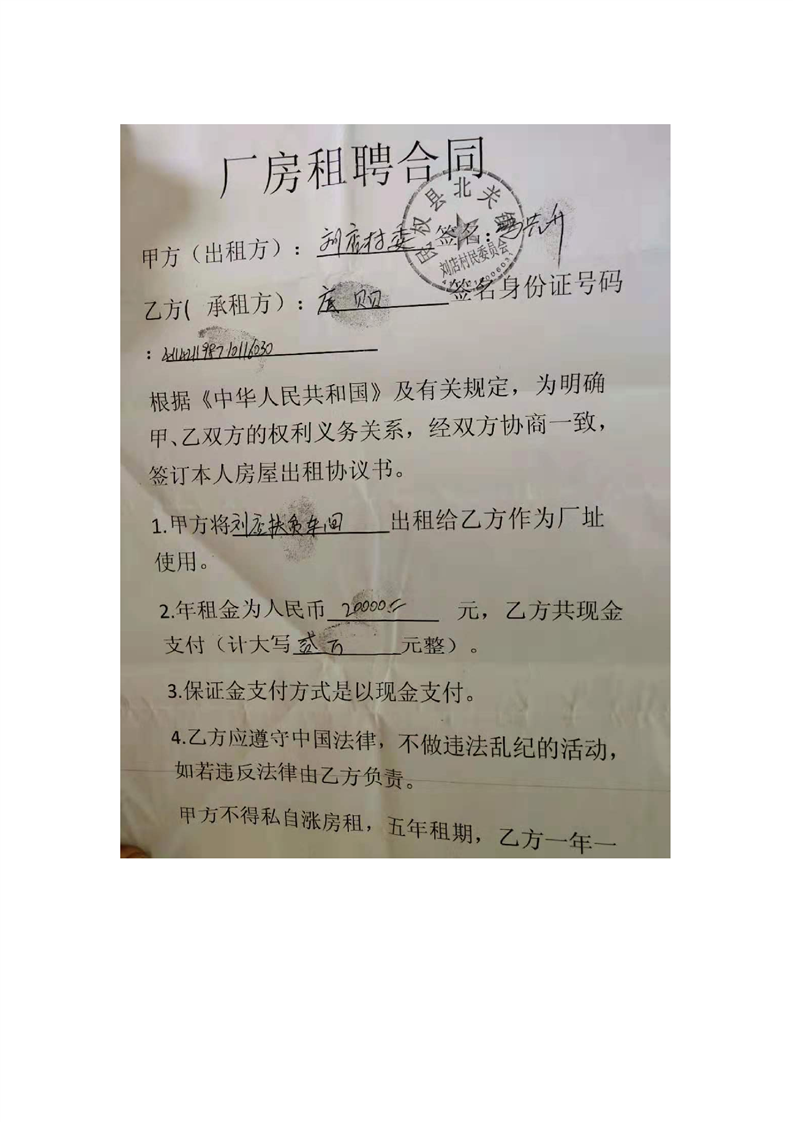 厂房租聘合同
甲方（出租方）：刘店村委 签名：
民权县北关镇
刘店村民委员会
乙方( 承租方）： 签名身份证号码
：
根据《中华人民共和国》及有关规定，为明确
甲、乙双方的权利义务关系，经双方协商一致，
签订本人房屋出租协议书。
1.甲方将刘店扶贫车间 出租给乙方作为厂址
使用。
2.年租金为人民币 20000 元，乙方共现金
支付（计大写 贰万 元整）。
3.保证金支付方式是以现金支付。
4.乙方应遵守中国法律，不做违法乱纪的活动，
如若违反法律由乙方负责。
甲方不得私自涨房租，五年租期，乙方一年一